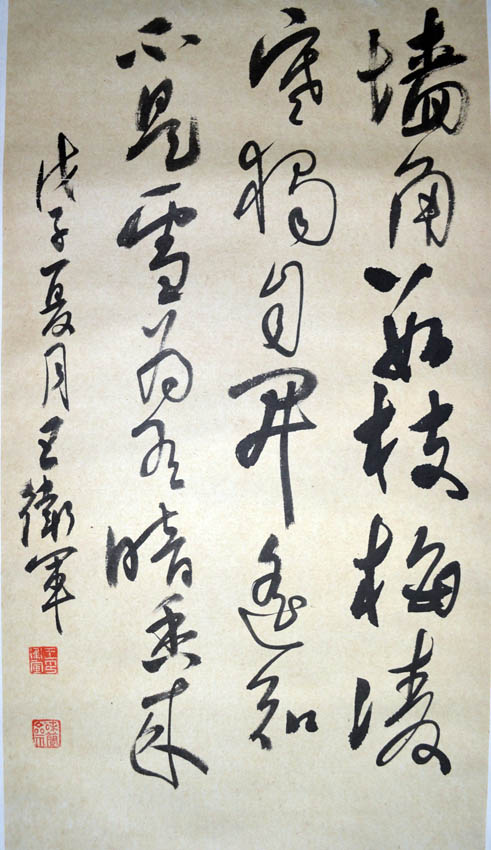 墙角數枝梅凌
寒獨自開遥知
不是雪为有暗香来
戊子夏月王衛軍